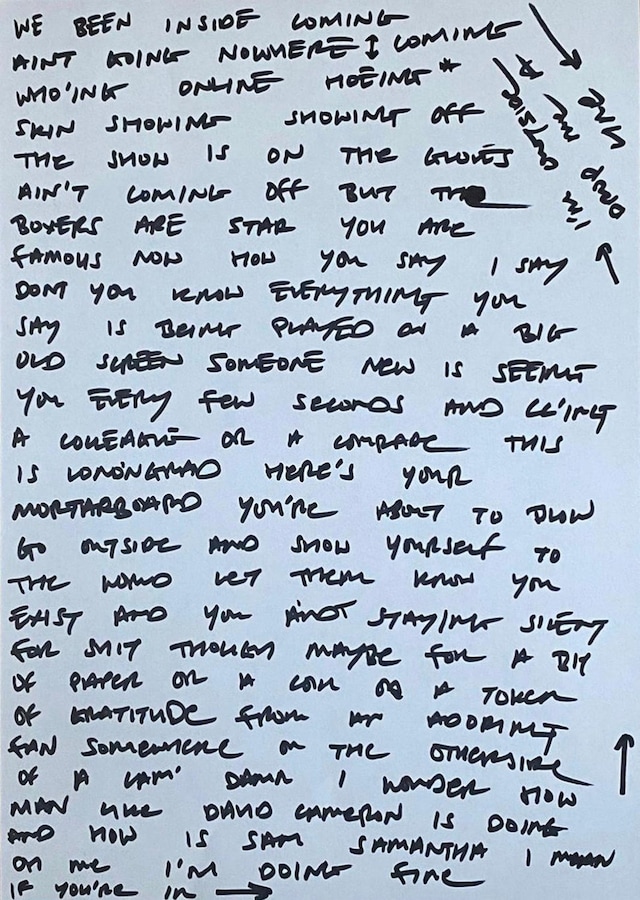 WE BEEN INSIDE COMING
AINT GOING NOWHERE ↕ COMING
WHO'ING ONLINE HOEING *
SKIN SHOWING SHOWING OFF
THE SHOW IS ON THE GLOVES
AIN'T COMING OFF BUT THE
BOXERS ARE STAR YOU ARE
FAMOUS NOW HOW YOU SAY I SAY
DONT YOU KNOW EVERYTHING YOU
SAY IS BEING PLAYED ON A BIG
OLD SCREEN SOMEONE NEW IS SEEING
YOU EVERY FEW SECONDS AND CC'ING
A COLLEAGUE OR A COMRADE THIS
IS LONDONGRAD HERE'S YOUR
MORTARBOARD YOU'RE ABOUT TO BLOW
GO OUTSIDE AND SHOW YOURSELF TO
THE WORLD LET THEM KNOW YOU
EXIST AND YOU AINT STAYING SILENT
FOR SHIT THOUGH MAYBE FOR A BIT
OF PAPER OR A COIN OR A TOKEN
OF GRATITUDE FROM AN ADORING
FAN SOMEWHERE ON THE OTHERSIDE
OF A CAM' DAMN I WONDER HOW
MAN LIKE DAVID CAMERON IS DOING
AND HOW IS SAM SAMANTHA I MEAN
OH ME I'M DOING FINE
IF YOU'RE IN →
I'M
OUTSIDE